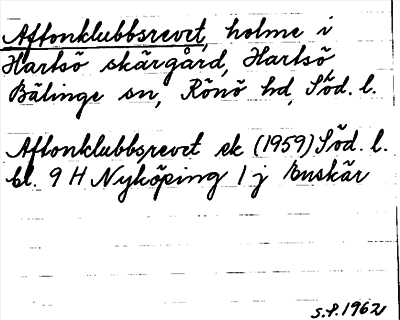 Aftonklubbsrevet, holme i
Hartsö skärgård, Hartsö
Bälinge sn, Rönö hd, Söd. l.
Aftonklubbsrevet ek (1959) Söd. l.
bl. 9 H Nyköping 1 j Enskär
S.P. 1962